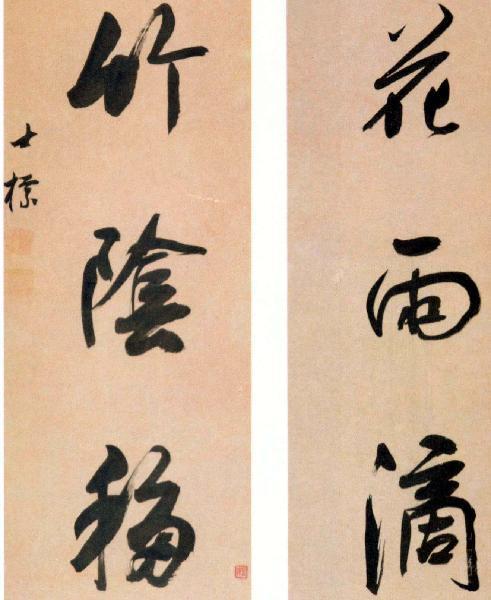 花雨滴
竹陰移
士標